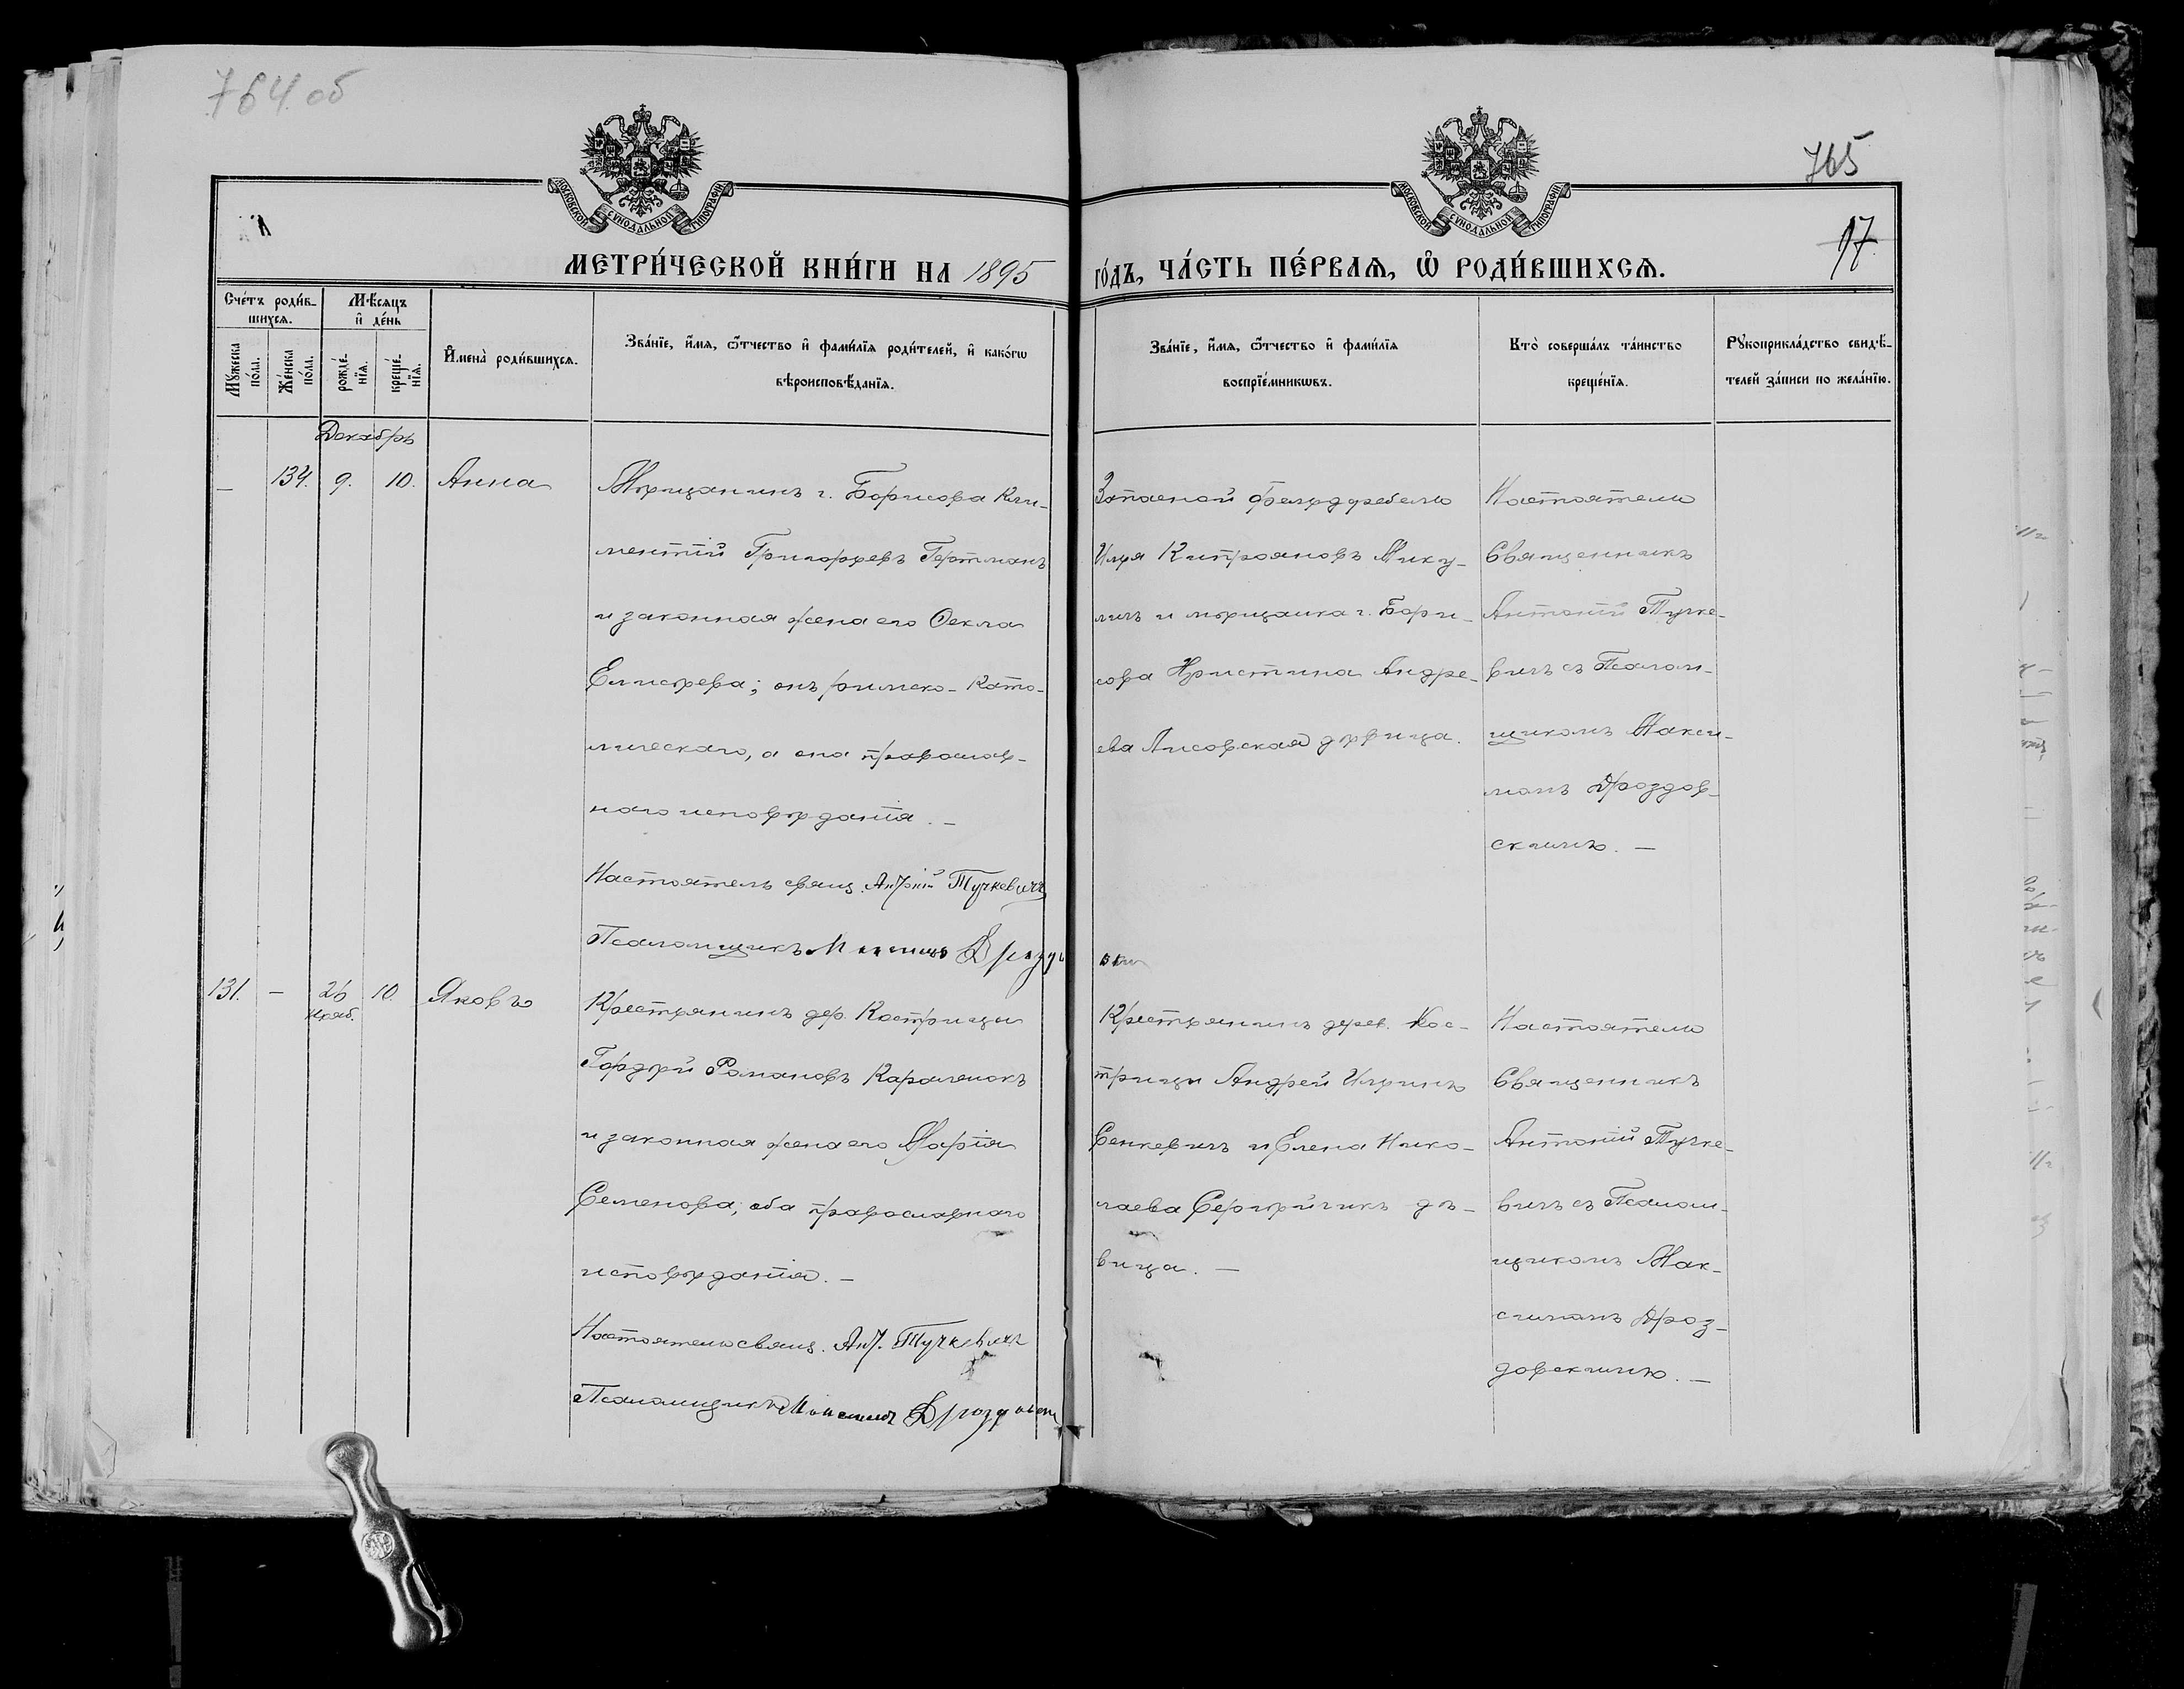 764 об
765
17
МОСКОВСКОЙ СѴНОДАЛЬНОЙ ТИПОГРАФІИ
МОСКОВСКОЙ СѴНОДАЛЬНОЙ ТИПОГРАФІИ
МЕТРИ́ЧЕСКОЙ КНИ́ГИ НА 1895 го́дъ, ЧА́СТЬ ПЕ́РВАѦ, Ѽ РОДИ́ВШИХСѦ.
Сче́тъ роди́в-
шихсѧ.
Мѣ́сѧцъ
и҆ де́нь
Мꙋ́жеска
по́ла.
Же́нска
по́ла.
рожде́-
нїѧ.
креще́-
нїѧ.
И҆мена̀ роди́вшихсѧ.
Зва́нїе, и҆́мѧ, ѻ҆́тчество и҆ фами́лїѧ роди́телей, и҆ како́гѡ
вѣроисповѣ́данїѧ.
Зва́нїе, и҆́мѧ, ѻ҆́тчество и҆ фами́лїѧ
воспрїе́мникѡвъ.
Кто̀ соверша́лъ та́инство
креще́нїѧ.
Рꙋкоприкла́дство свидѣ́-
телей за́писи по жела́нїю.
Декабрь
— 134. 9. 10. Анна
Мѣщанинъ г. Борисова Кли-
ментій Григорьевъ Гертманъ
и законная жена его Ѳекла
Елисѣева; онъ римско-като-
лическаго, а она православ-
наго исповѣданія. —
Настоятель свящ. Антоній Тучкевичъ
Псаломщикъ Максимъ Дроздовскій
Запасной фельдфебель
Илья Кипріяновъ Мику-
личъ и мѣщанка г. Бори-
сова Христина Андре-
ева Лисовская дѣвица.
Настоятель
Священникъ
Антоній Тучке-
вичъ съ Псалом-
щикомъ Макси-
момъ Дроздов-
скимъ. —
131. — 26 нояб. 10. Яковъ
Крестьянинъ дер. Кострицы
Гордѣй Романовъ Короленокъ
и законная жена его Марія
Семенова; оба православнаго
исповѣданія. —
Настоятель свящ. Ант. Тучкевичъ
Псаломщикъ Максимъ Дроздовскій
Крестьянинъ дерев. Кос-
трицы Андрей Ильинъ
Сенкевичъ и Елена Нико-
лаева Сергѣйчикъ дѣ-
вица. —
Настоятель
Священникъ
Антоній Тучке-
вичъ съ Псалом-
щикомъ Мак-
симомъ Дроз-
довскимъ. —